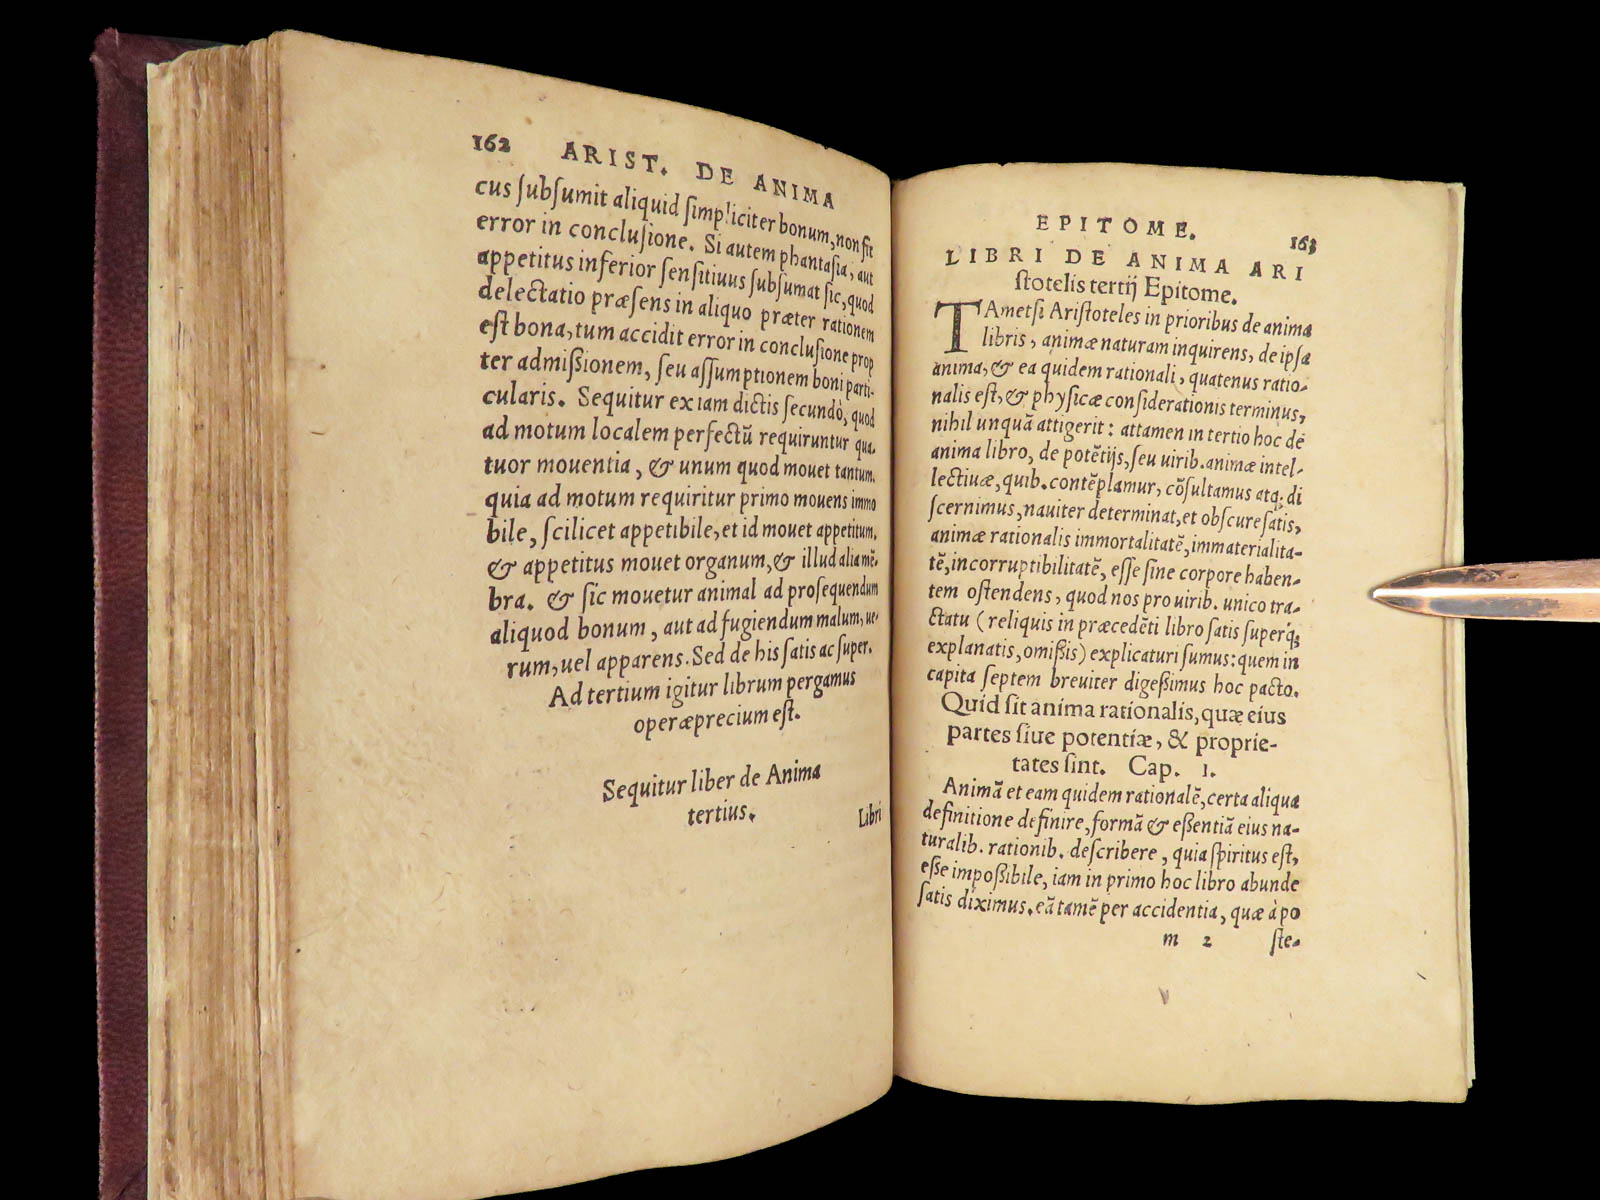 162 ARIST. DE ANIMA
cus ſubſumit aliquid ſimpliciter bonum, non fit
error in concluſione. Si autem phantaſia, aut
appetitus inferior ſenſitiuus ſubſumat ſic, quod
delectatio præſens in aliquo præter rationem
eſt bona, tum accidit error in concluſione prop
ter admiſsionem, ſeu aſſumptionem boni parti-
cularis. Sequitur ex iam dictis ſecundò, quod
ad motum localem perfectū requiruntur qua-
tuor mouentia, & unum quod mouet tantum.
quia ad motum requiritur primo mouens immo
bile, ſcilicet appetibile, et id mouet appetitum.
& appetitus mouet organum, & illud alia mē-
bra. & ſic mouetur animal ad proſequendum
aliquod bonum, aut ad fugiendum malum, ue-
rum, uel apparens. Sed de his ſatis ac ſuper.
Ad tertium igitur librum pergamus
operæprecium eſt.
Sequitur liber de Anima
tertius.
Libri
EPITOME. 163
LIBRI DE ANIMA ARI
ſtotelis tertij Epitome.
TAmetſi Ariſtoteles in prioribus de anima
libris, animæ naturam inquirens, de ipſa
anima, & ea quidem rationali, quatenus ratio-
nalis eſt, & phyſicæ conſiderationis terminus,
nihil unquā attigerit: attamen in tertio hoc de
anima libro, de potētijs, ſeu uirib. animæ intel-
lectiuæ, quib. contēplamur, cōſultamus atq; di
ſcernimus, nauiter determinat, et obſcure ſatis,
animæ rationalis immortalitatē, immaterialita-
tē, incorruptibilitatē, eſſe ſine corpore haben-
tem oſtendens, quod nos pro uirib. unico tra-
ctatu (reliquis in præcedēti libro ſatis ſuperq́;
explanatis, omiſsis) explicaturi ſumus: quem in
capita ſeptem breuiter digeſsimus hoc pacto.
Quid ſit anima rationalis, quæ eius
partes ſiue potentiæ, & proprie-
tates ſint. Cap. 1.
Animā et eam quidem rationalē, certa aliqua
definitione definire, formā & eſsentiā eius na-
turalib. rationib. deſcribere, quia ſpiritus eſt,
eſse impoſsibile, iam in primo hoc libro abunde
ſatis diximus. eā tamē per accidentia, quæ à po
m 2 ſte-